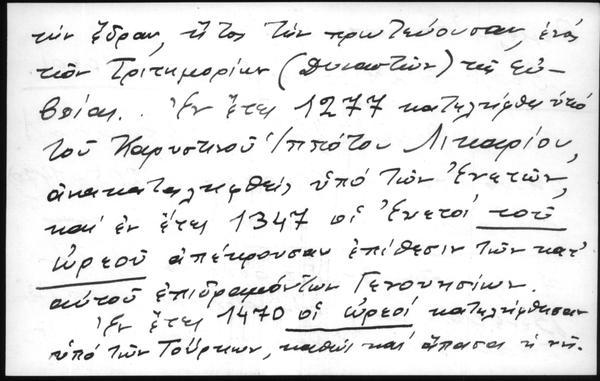 τὴν ἕδραν, ἤτοι τὴν πρωτεύουσαν, ἑνός
τῶν Τριτημορίων (Δυναστῶν) τῆς Εὐ-
βοίας. Ἐν ἔτει 1277 κατελήφθη ὑπό
τοῦ Καρυστινοῦ Ἱππότου Λικαρίου,
ἀνακαταληφθείς ὑπό τῶν Ἑνετῶν,
καί ἐν ἔτει 1347 οἱ Ἑνετοί τοῦ
Ὠρεοῦ ἀπέκρουσαν ἐπίθεσιν τῶν κατ'
αὐτοῦ ἐπιδραμόντων Γενουησίων.
Ἐν ἔτει 1470 οἱ Ὠρεοί κατελήφθησαν
ὑπό τῶν Τούρκων, καθώς καί ἅπασα ἡ νῆ-